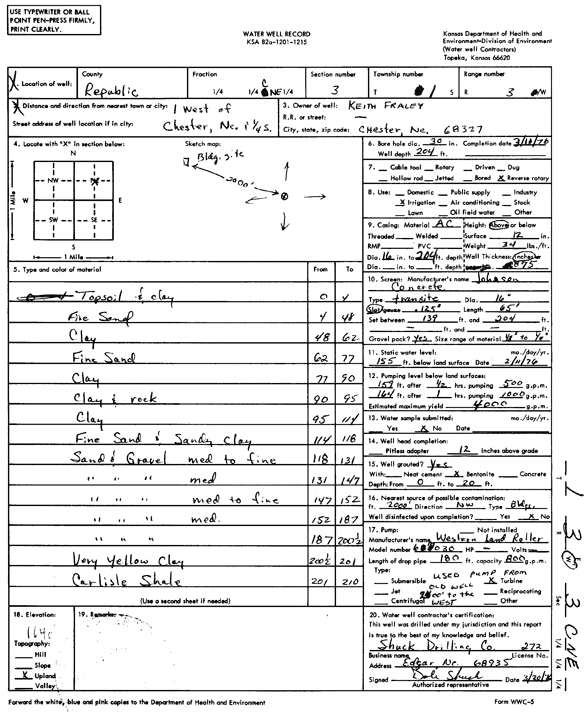 USE TYPEWRITER OR BALL
POINT PEN-PRESS FIRMLY,
PRINT CLEARLY.
WATER WELL RECORD
KSA 82a-1201-1215
Kansas Department of Health and
Environment-Division of Environment
(Water well Contractors)
Topeka, Kansas 66620
X Location of well: County Republic Fraction 1/4 1/4 C NE 1/4 Section number 3 Township number T 1 S Range number R 3 W
X Distance and direction from nearest town or city: 1 West of
Street address of well location if in city: Chester, Ne. 1 1/4 S.
3. Owner of well: KEITH FRALEY
R.R. or street: —
City, state, zip code: CHESTER, Ne. 68327
4. Locate with "X" in section below:
N
NW
W E
SW SE
S
1 Mile
1 Mile
Sketch map:
Bldg. site
2000'
6. Bore hole dia. 30 in. Completion date 3/16/76
Well depth 204 ft.
7. Cable tool Rotary Driven Dug
Hollow rod Jetted Bored X Reverse rotary
8. Use: Domestic Public supply Industry
X Irrigation Air conditioning Stock
Lawn Oil field water Other
9. Casing: Material AC Height: Above or below
Threaded Welded Surface 12 in.
RMP PVC Weight 34 lbs./ft.
Dia. 16 in. to 204 ft. depth Wall Thickness: inches
Dia. in. to ft. depth .875
10. Screen: Manufacturer's name Johnson
Concrete
Type transite Dia. 16"
Slot/gauze .125" Length 65'
Set between 139 ft. and 204 ft.
— ft. and — ft.
Gravel pack? yes Size range of material 1/8" to 1/8"
11. Static water level: mo./day/yr.
155 ft. below land surface Date 2/11/76
12. Pumping level below land surfaces:
159 ft. after 1/2 hrs. pumping 500 g.p.m.
164 ft. after 1 hrs. pumping 1000 g.p.m.
Estimated maximum yield 4000 g.p.m.
13. Water sample submitted: mo./day/yr.
Yes X No Date
14. Well head completion:
Pitless adapter 12 Inches above grade
15. Well grouted? yes
With: Neat cement X Bentonite Concrete
Depth: From 0 ft. to 20 ft.
16. Nearest source of possible contamination:
ft. 2000' Direction NW Type Bldg.
Well disinfected upon completion? Yes X No
17. Pump: Not installed
Manufacturer's name Western Land Roller
Model number HP — Volts
Length of drop pipe 180 ft. capacity 800 g.p.m.
Type: USED PUMP FROM
Submersible OLD WELL X Turbine
Jet 2400' to the Reciprocating
Centrifugal WEST Other
5. Type and color of material From To
Topsoil & clay 0 4
Fine Sand 4 48
Clay 48 62
Fine Sand 62 77
Clay 77 90
Clay & rock 90 95
Clay 95 114
Fine Sand & Sandy Clay 114 118
Sand & Gravel med to fine 118 131
" " " med 131 147
" " " med to fine 147 152
" " med. 152 187
" " " 187 200 1/2
Very Yellow Clay 200 1/2 201
Carlisle Shale 201 210
(Use a second sheet if needed)
18. Elevation:
Topography:
Hill
Slope
X Upland
Valley
19. Remarks:
20. Water well contractor's certification:
This well was drilled under my jurisdiction and this report
is true to the best of my knowledge and belief.
Shuck Drilling Co. 272
Business name License No.
Address Edgar, Nr. 68935
Signed Dale Shuck Date 3/20/76
Authorized representative
Forward the white, blue and pink copies to the Department of Health and Environment Form WWC-5
T 1 R 3 W Sec 3 C NE 1/4 1/4 1/4